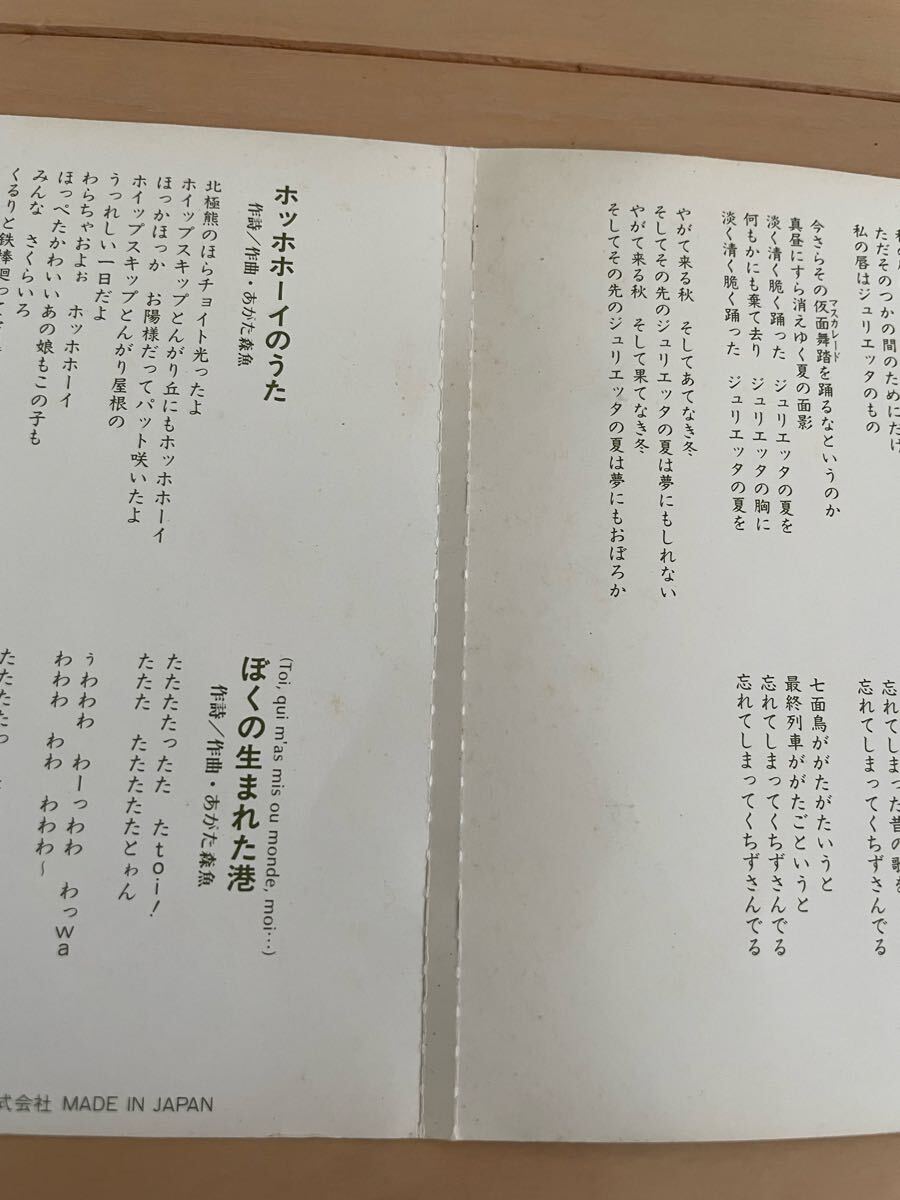 ただそのつかの間のためにだけ
私の唇はジュリエッタのもの
今さらその仮面舞踏を踊るなというのか
マスカレード
真昼にすら消えゆく夏の面影
淡く清く脆く踊った　ジュリエッタの夏を
何もかにも棄て去り　ジュリエッタの胸に
淡く清く脆く踊った　ジュリエッタの夏を
やがて来る秋　そしてあてなき冬
そしてその先のジュリエッタの夏は夢にもしれない
やがて来る秋　そして果てなき冬
そしてその先のジュリエッタの夏は夢にもおぼろか
忘れてしまった昔の歌を
忘れてしまってくちずさんでる
七面鳥ががたがたいうと
最終列車ががたごというと
忘れてしまってくちずさんでる
忘れてしまってくちずさんでる
ホッホホーイのうた
作詩／作曲・あがた森魚
北極熊のほらチョイト光ったよ
ホイップスキップとんがり丘にもホッホホーイ
ほっかほっか　お陽様だってパット咲いたよ
ホイップスキップとんがり屋根の
うっれしい一日だよ
わらちゃおよぉ　ホッホホーイ
ほっぺたかわいいあの娘もこの子も
みんな　さくらいろ
くるりと鉄棒廻って
(Toi, qui m'as mis ou monde, moi…)
ぼくの生まれた港
作詩／作曲・あがた森魚
たたたたったた　たtoi!
たたた　たたたたたとゎん
ぅわわわ　わーっわわ　わっwa
わわわ　わわ　わわわ〜
たたたたっ
式会社 MADE IN JAPAN